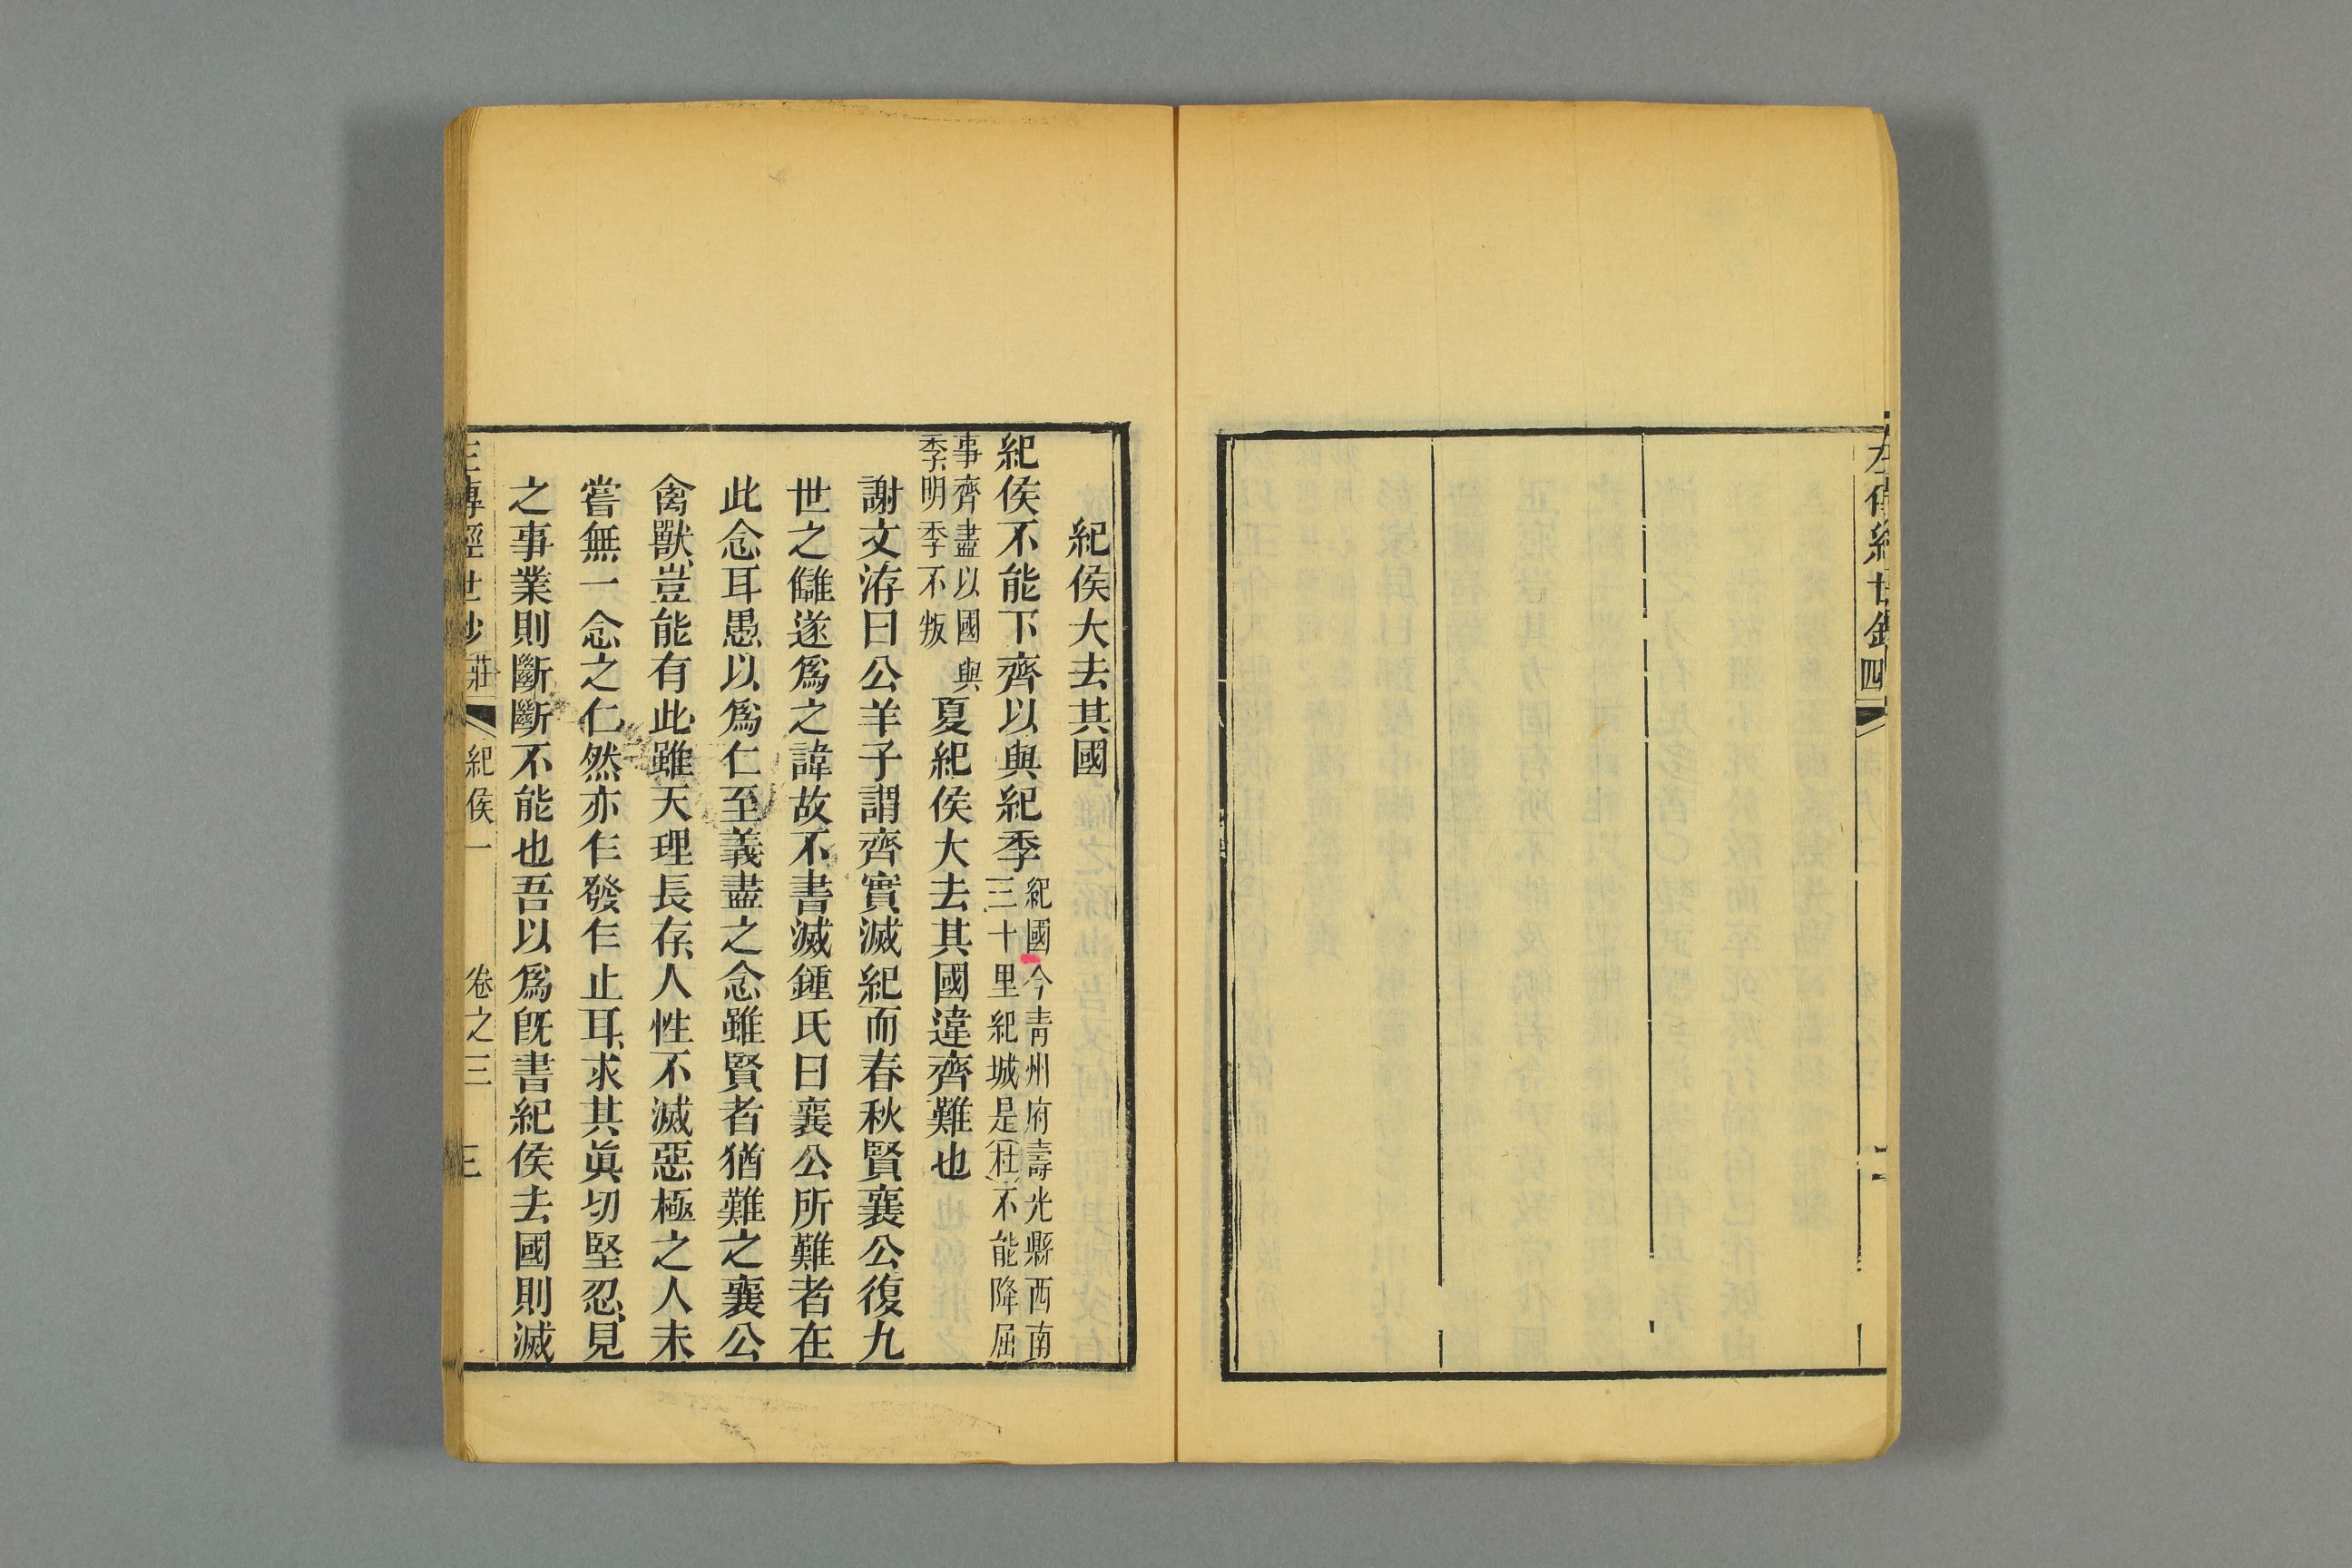 左傳經世鈔 四
紀侯大去其國
紀侯不能下齊以與紀季 紀國今青州府壽光縣西南
三十里紀城是 杜 不能降屈
事齊盡以國與
季明季不叛
夏紀侯大去其國違齊難也
謝文洊曰公羊子謂齊實滅紀而春秋賢襄公復九
世之讎遂爲之諱故不書滅鍾氏曰襄公所難者在
此念耳愚以爲仁至義盡之念雖賢者猶難之襄公
禽獸豈能有此雖天理長存人性不滅惡極之人未
嘗無一念之仁然亦乍發乍止耳求其眞切堅忍見
之事業則斷斷不能也吾以爲旣書紀侯去國則滅
左傳經世鈔 莊 紀侯一 卷之三 三